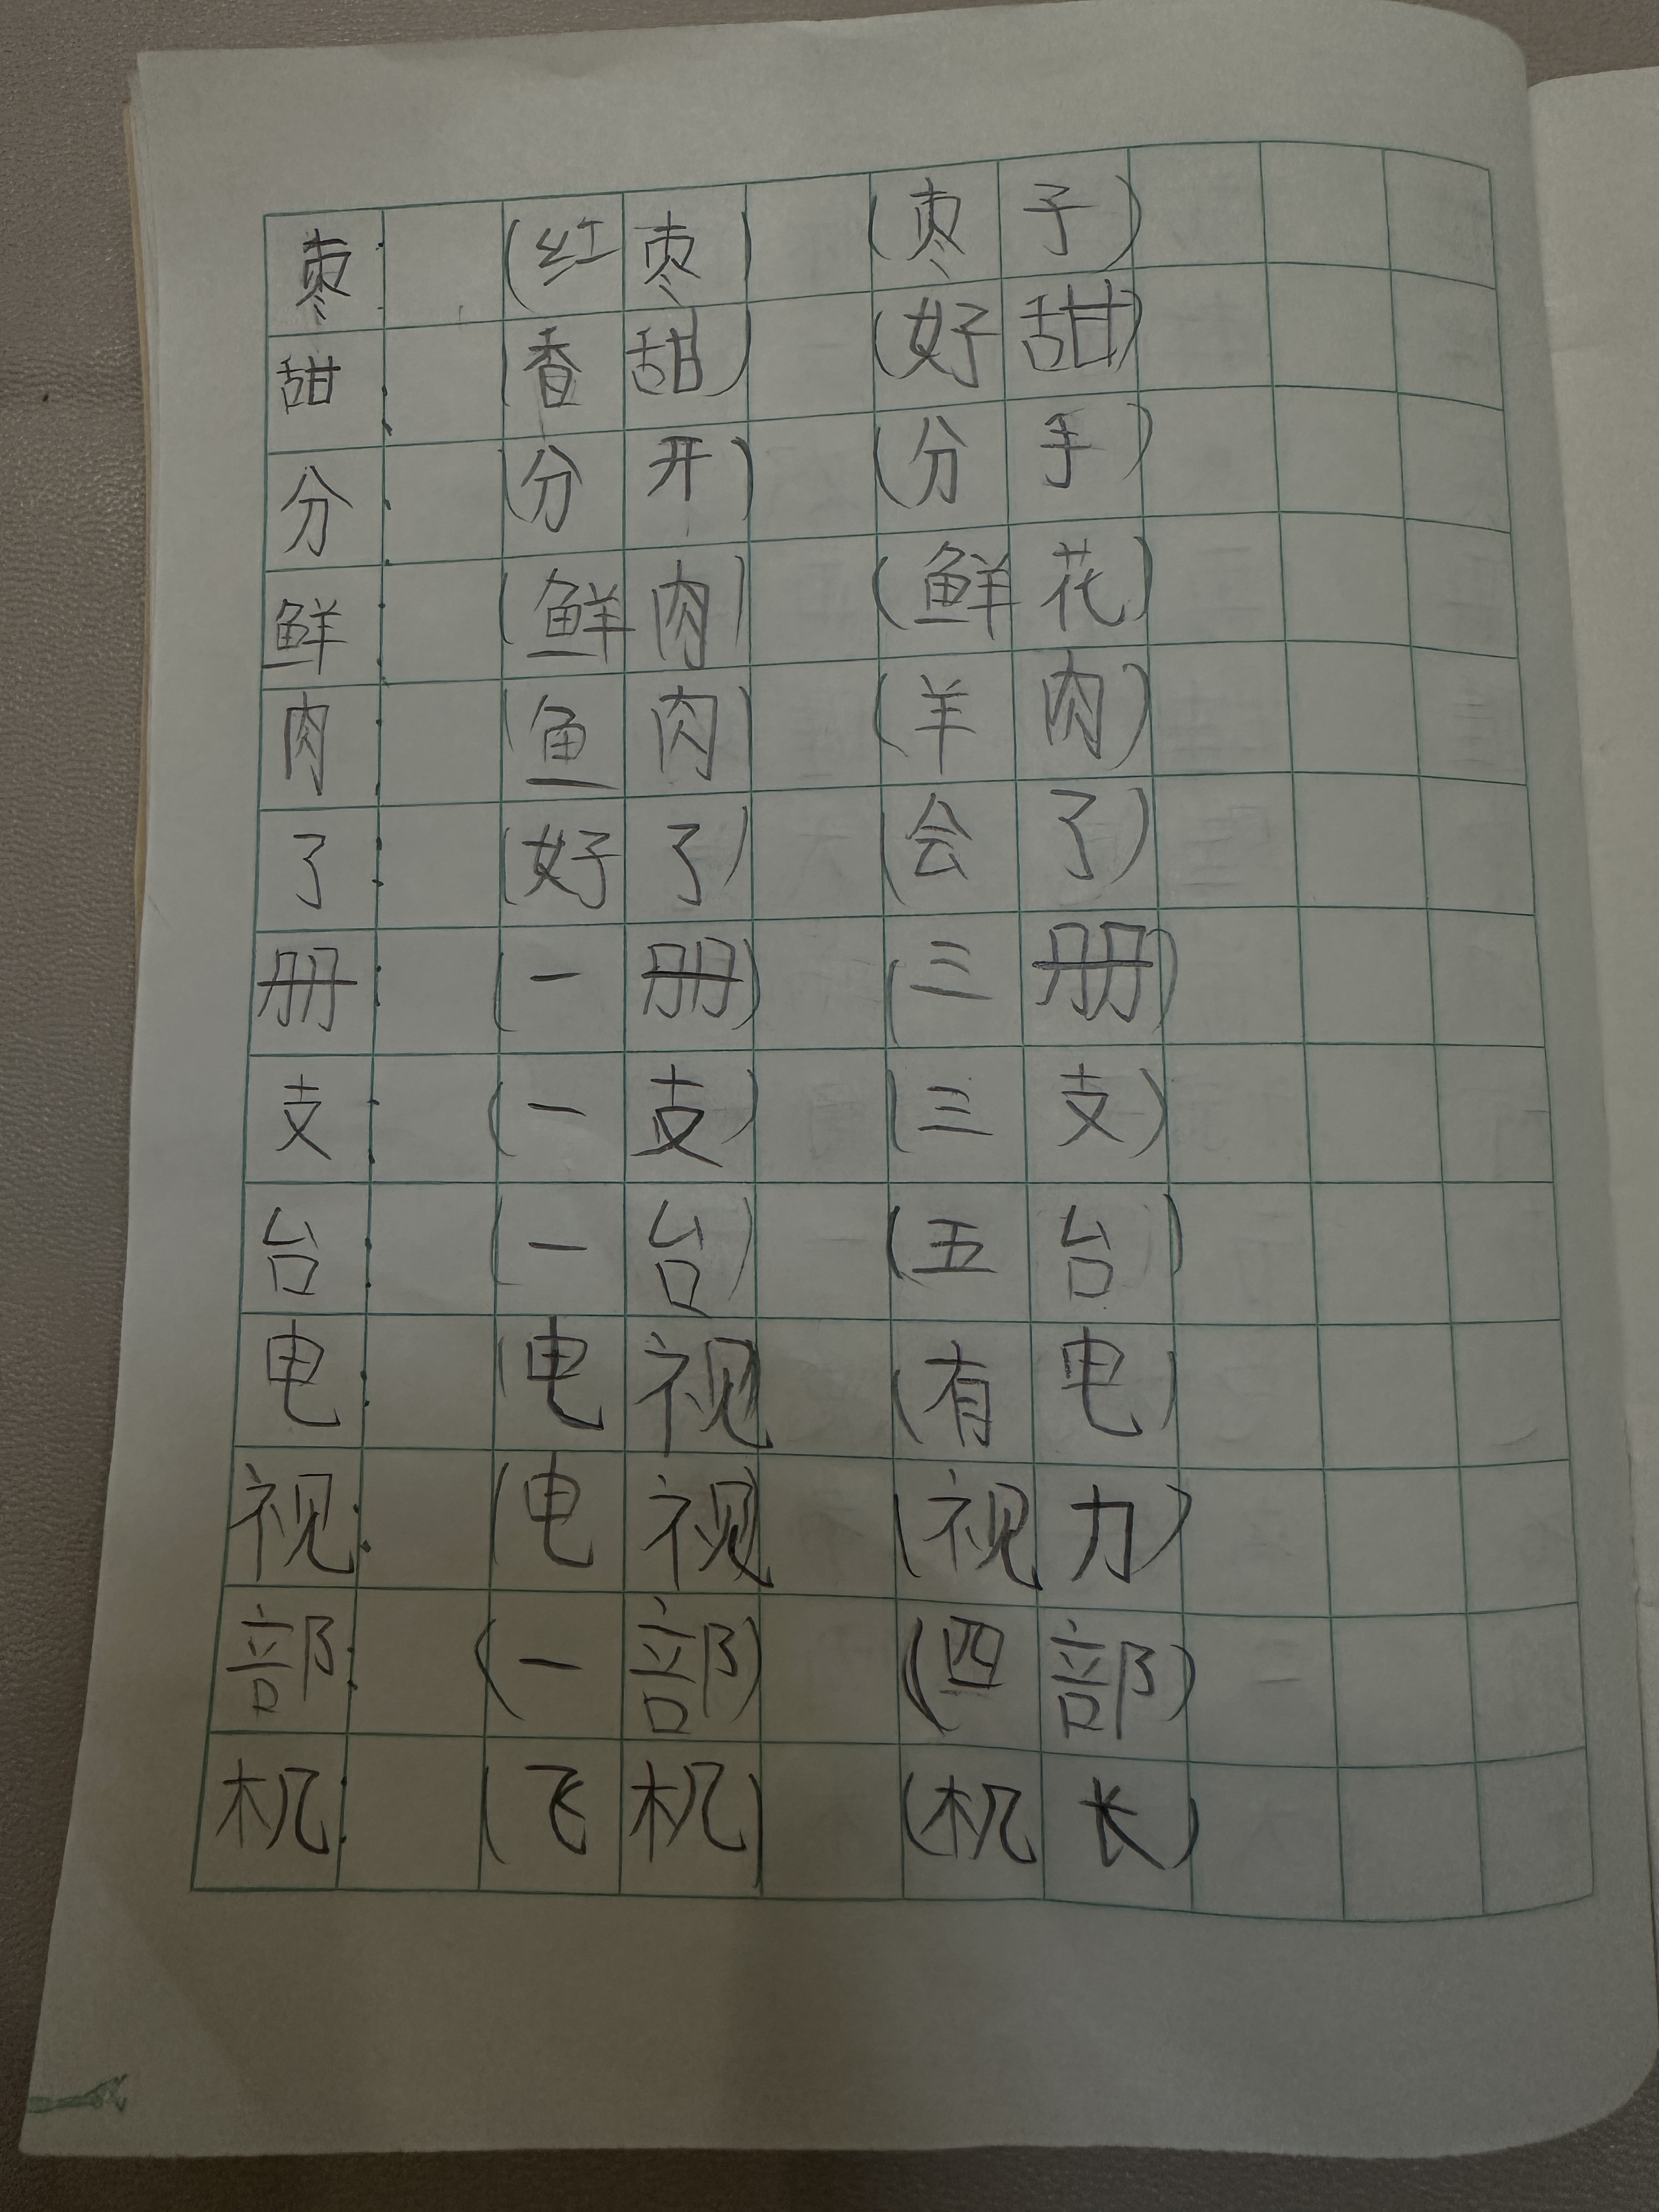 枣：（红枣）（枣子）
甜：（香甜）（好甜）
分：（分开）（分手）
鲜：（鲜肉）（鲜花）
肉：（鱼肉）（羊肉）
了：（好了）（会了）
册：（一册）（三册）
支：（一支）（三支）
台：（一台）（五台）
电：（电视（有电）
视：（电视（视力）
部：（一部）（四部）
机：（飞机）（机长）